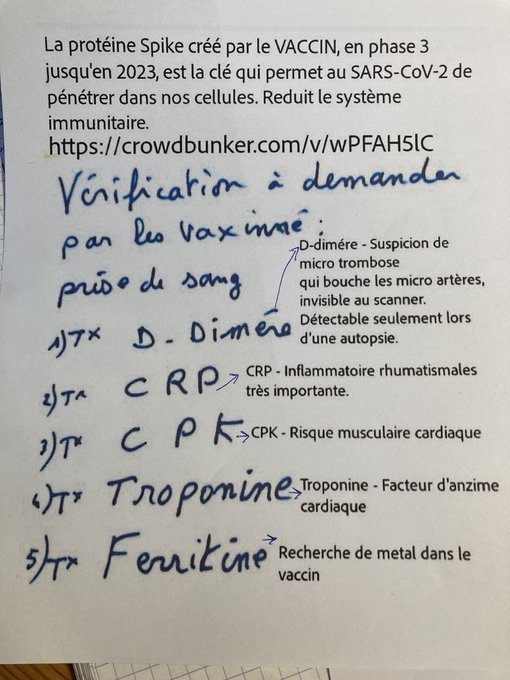 La protéine Spike créé par le VACCIN, en phase 3
jusqu'en 2023, est la clé qui permet au SARS-CoV-2 de
pénétrer dans nos cellules. Reduit le système
immunitaire.
https://crowdbunker.com/v/wPFAH5lC
Vérification à demander
par les vaxinné :
prise de sang
1) TX D. Dimére
D-dimére - Suspicion de
micro trombose
qui bouche les micro artères,
invisible au scanner.
Détectable seulement lors
d'une autopsie.
2) TX CRP
CRP - Inflammatoire rhumatismales
très importante.
3) TX CPK
CPK - Risque musculaire cardiaque
4) TX Troponine
Troponine - Facteur d'anzime
cardiaque
5) TX Ferritine
Recherche de metal dans le
vaccin